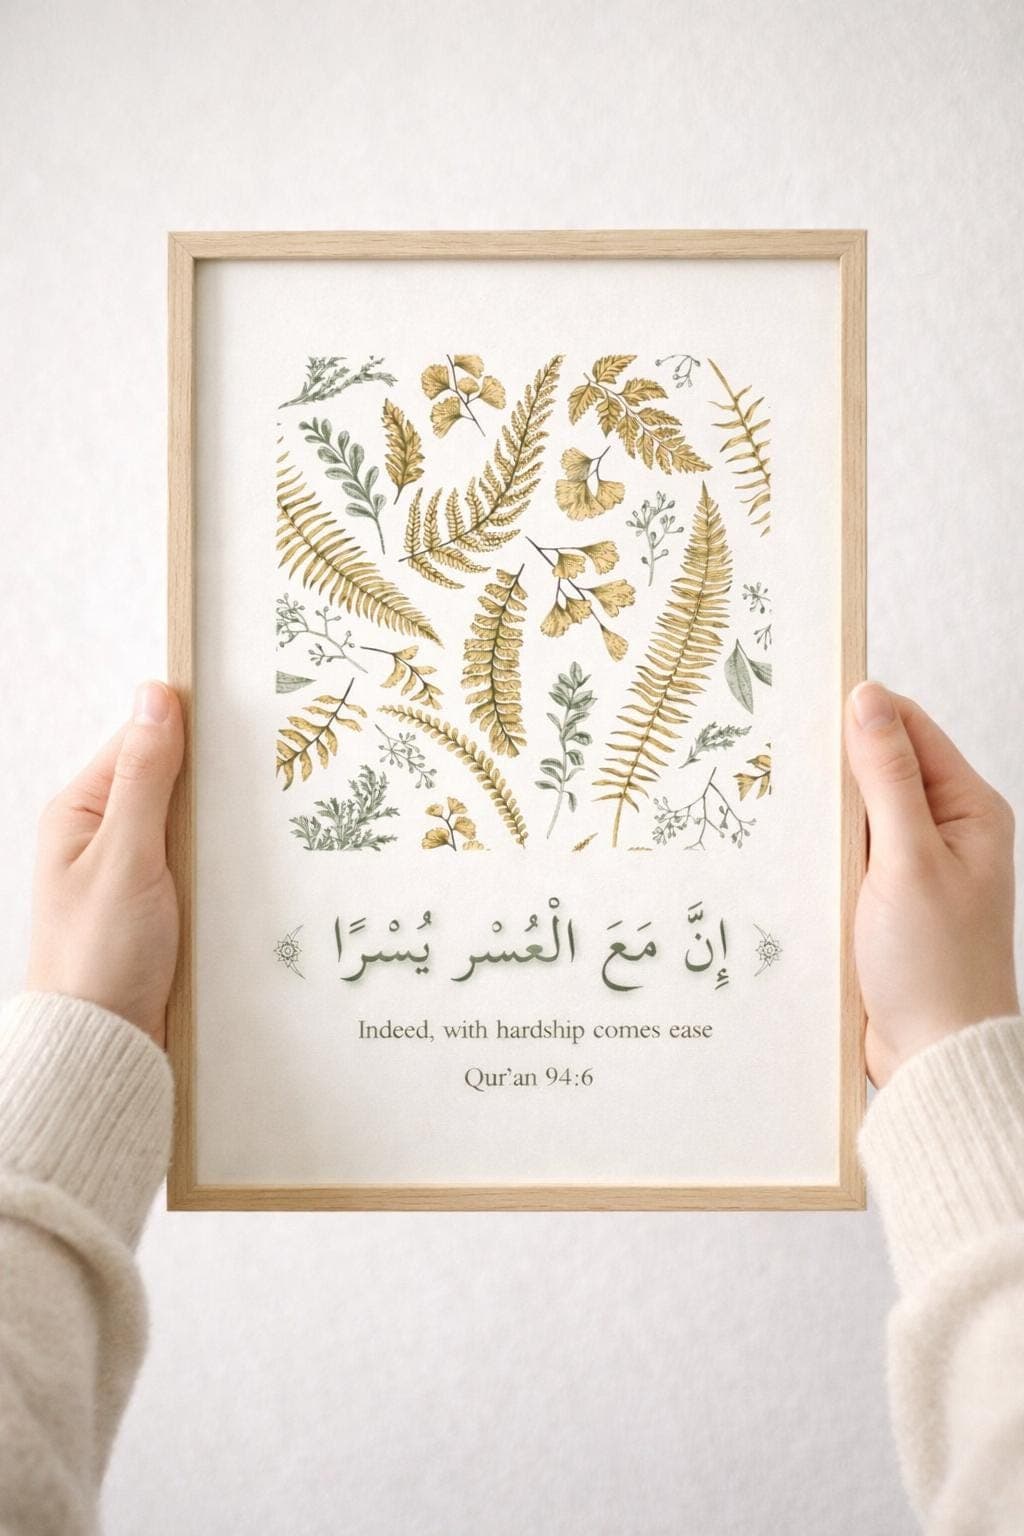 إِنَّ مَعَ الْعُسْر يُسْرًا
Indeed, with hardship comes ease
Qur'an 94:6